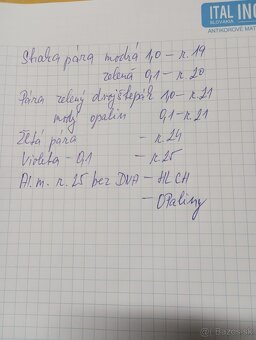 ITAL INO
SLOVAKIA
ANTIKOROVÉ MAT
Straka pára modrá 1,0 - r. 19
zelená 0,1 - r. 20
Pára zelený dvojštepár 1,0 - r. 21
modý opalin 0,1 - r. 21
Žltá pára - r. 24
Violeta - 0,1 - r. 25
Al. m. r. 25 bez DNA - HL CH
- OPaliny
bazos.sk